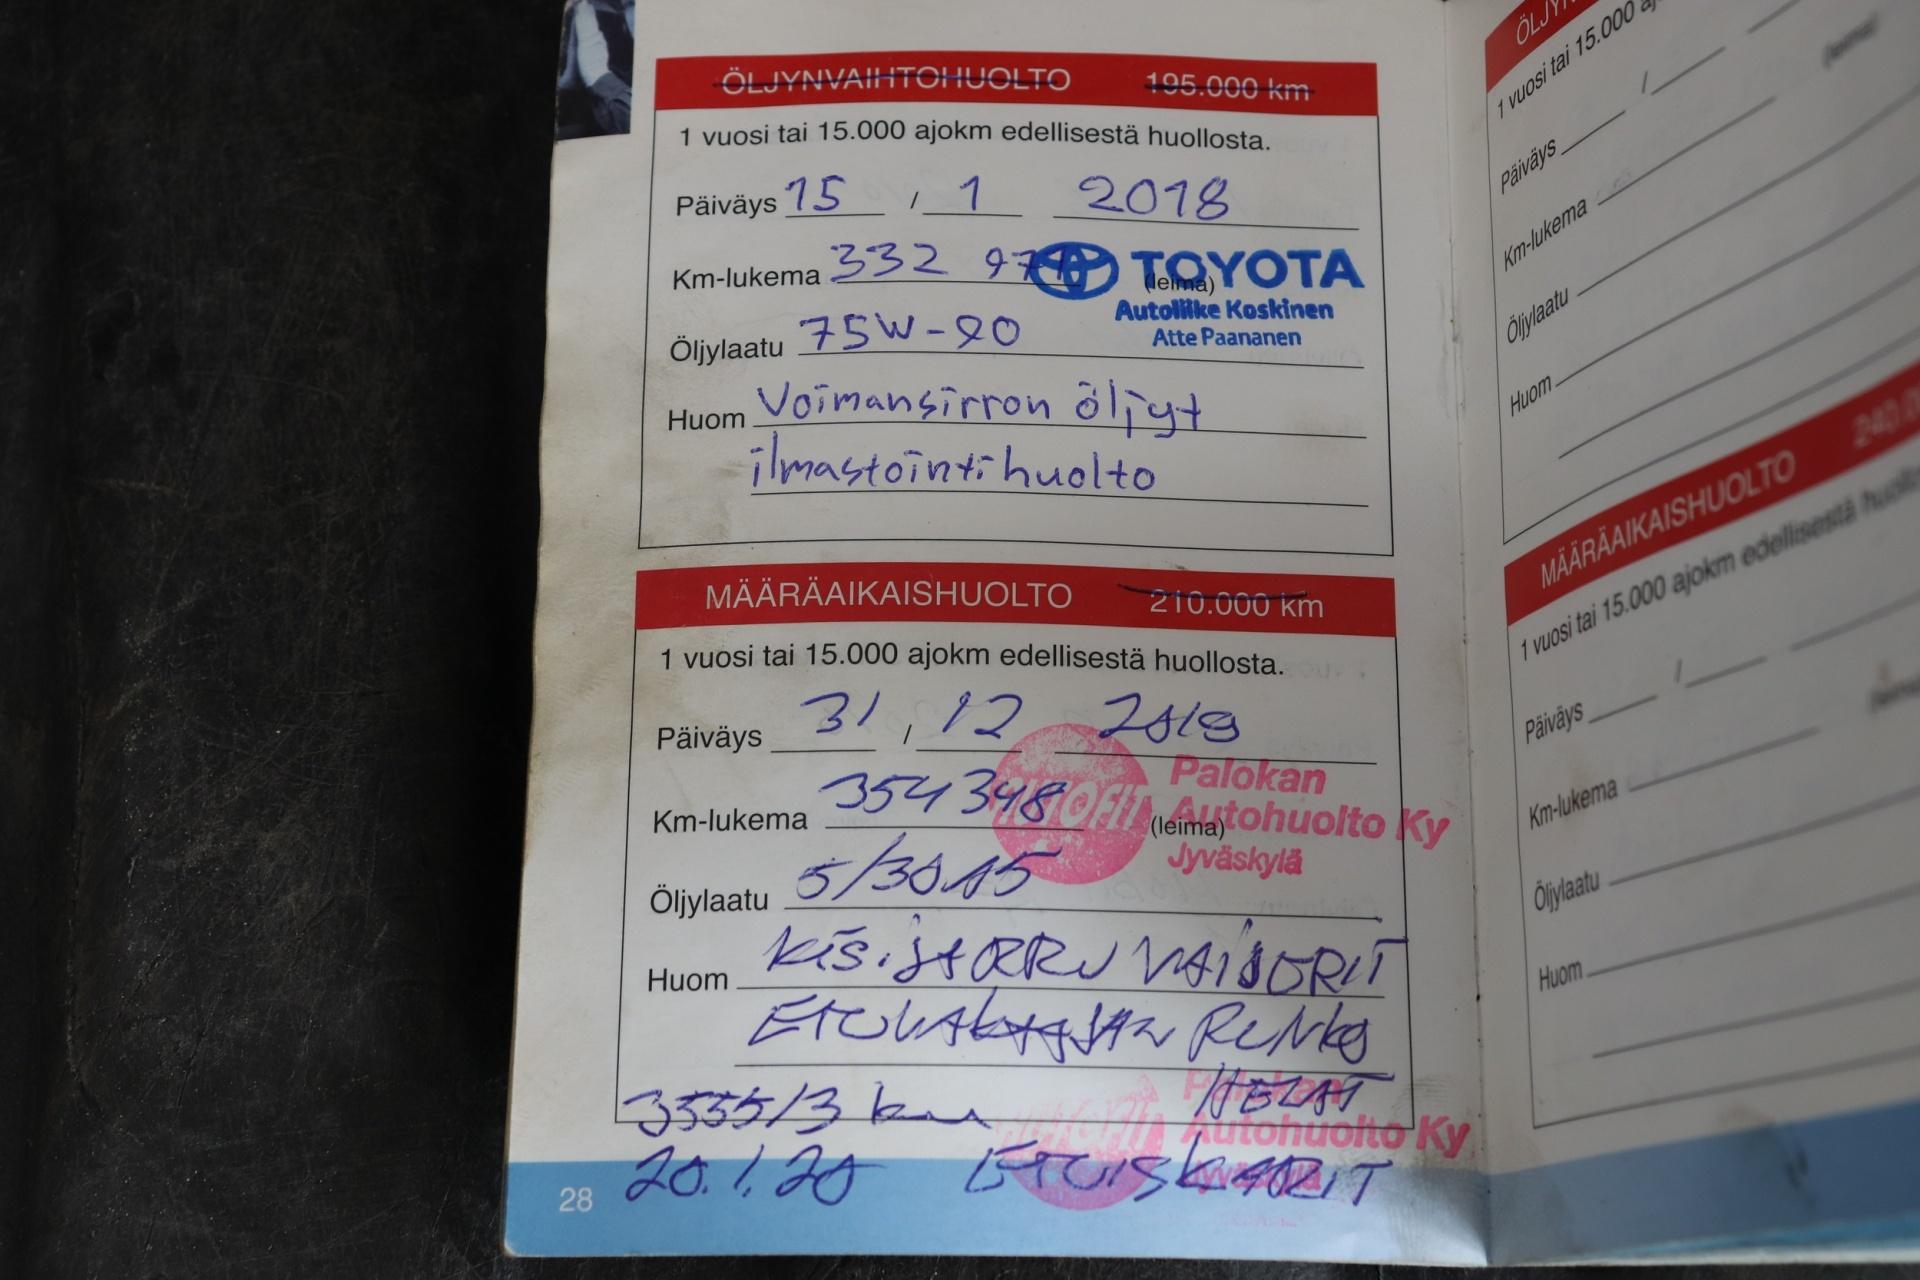 ÖLJYNVAIHTOHUOLTO 195.000 km
1 vuosi tai 15.000 ajokm edellisestä huollosta.
Päiväys 15 / 1 2018
Km-lukema 332 971
TOYOTA
(leima)
Autoliike Koskinen
Atte Paananen
Öljylaatu 75W-90
Huom Voimansirron öljyt
ilmastointihuolto
MÄÄRÄAIKAISHUOLTO 210.000 km
1 vuosi tai 15.000 ajokm edellisestä huollosta.
Päiväys 31 / 12 2019
Km-lukema 354348
AUTOFIT
Palokan
Autohuolto Ky
(leima)
Jyväskylä
Öljylaatu 5/30
Huom
HELAT
Palokan
Autohuolto Ky
Jyväskylä
355513 km
20.1.20 ETUISKARIT
28
1 vuosi tai 15.000
Päiväys /
(leima)
Km-lukema
Öljylaatu
Huom
MÄÄRÄAIKAISHUOLTO
1 vuosi tai 15.000 ajokm edellisestä
Päiväys /
Km-lukema
Öljylaatu
Huom